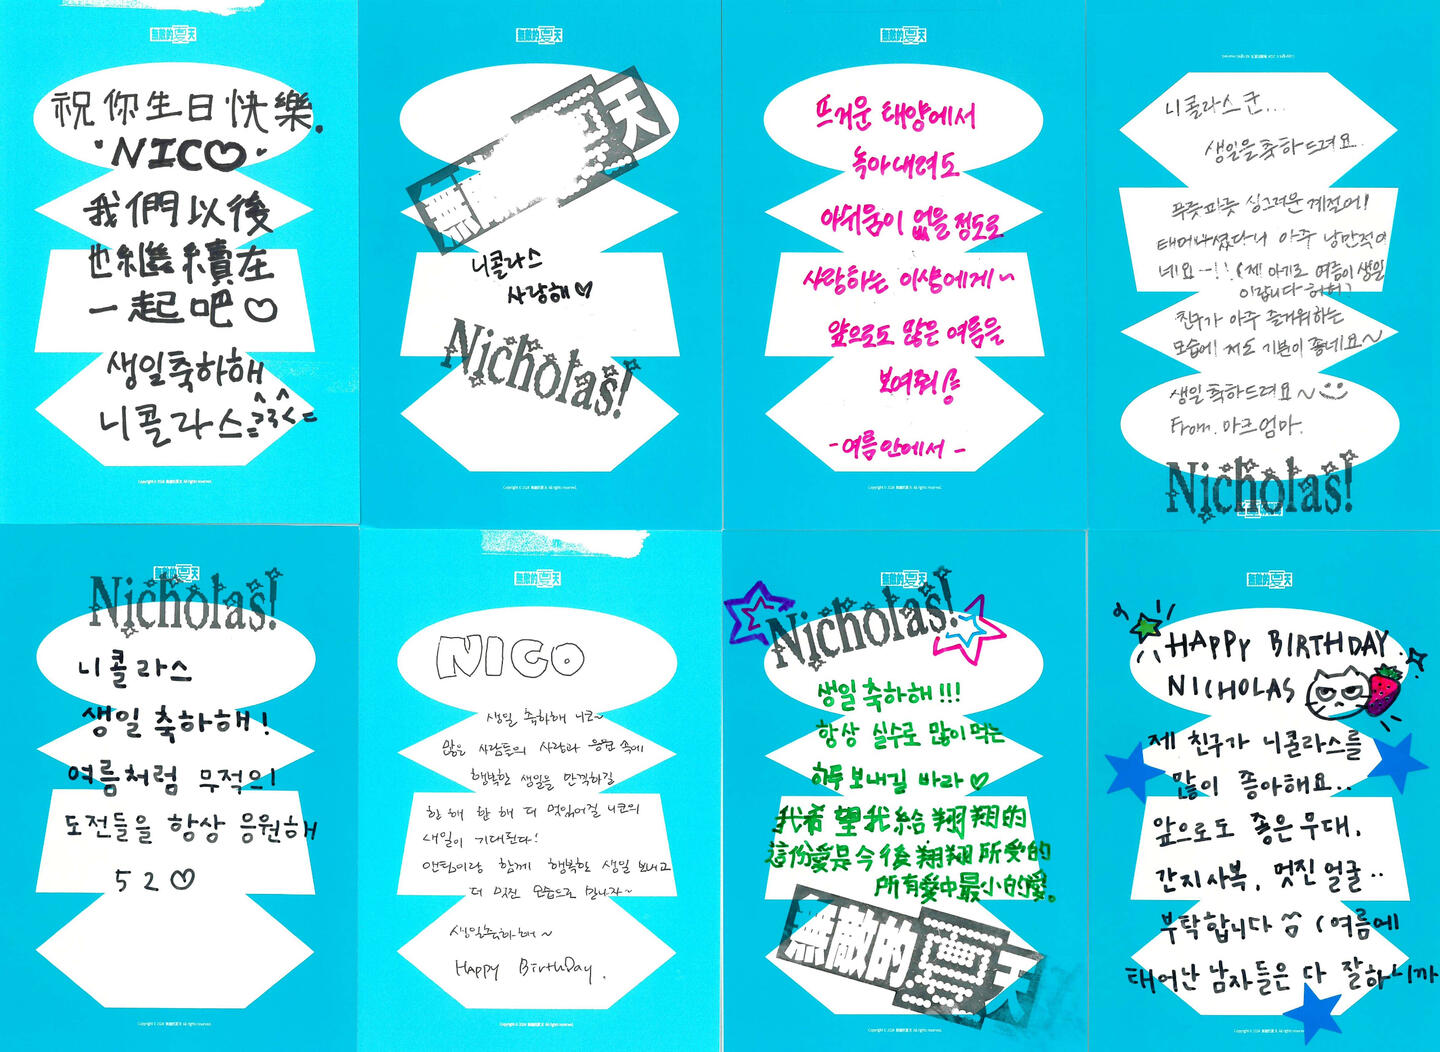 無敵的夏天
祝你生日快樂.
·NICO·
我們以後
也繼續在
一起吧♡
생일축하해
니콜라스
Copyright © 2024 無敵的夏天 All rights reserved.
無敵的夏天
無 天
니콜라스
사랑해♡
Nicholas!
Copyright © 2024 無敵的夏天 All rights reserved.
無敵的夏天
뜨거운 태양에서
녹아내려도
아쉬움이 없을 정도로
사랑하는 이상에게~
앞으로도 많은 여름을
보여줘!
-여름안에서-
Copyright © 2024 無敵的夏天 All rights reserved.
니콜라스군...
생일을 축하드려요.
푸릇파릇 싱그러운 계절에!
태어나셨다니 아주 낭만적이
네요~!! (제 아기도 여름이 생일
이랍니다 허허)
친구가 아주 즐거워하는
모습에 저도 기분이 좋네요~
생일 축하드려요~
From. 아크엄마.
Nicholas!
無敵的夏天
Nicholas!
니콜라스
생일 축하해!
여름처럼 무적의!
도전들을 항상 응원해
52♡
Copyright © 2024 無敵的夏天 All rights reserved.
無敵的夏天
NICO
생일 축하해 니코~
많은 사람들의 사랑과 응원 속에
행복한 생일을 만끽하길
한 해 한 해 더 멋있어질 니코의
생일이 기대된다!
앤팀이랑 함께 행복한 생일 보내고
더 멋진 모습으로 만나자~
생일축하해~
Happy BirthDay.
Copyright © 2024 無敵的夏天 All rights reserved.
無敵的夏天
Nicholas!
생일축하해!!!
항상 실수로 많이 먹는
하루 보내길 바라♡
我希望我給翔翔的
這份愛是今後翔翔所受的
所有愛中最小的愛。
無敵的夏天
Copyright © 2024 無敵的夏天 All rights reserved.
無敵的夏天
HAPPY BIRTHDAY
NICHOLAS
제 친구가 니콜라스를
많이 좋아해요..
앞으로도 좋은무대,
간지사복, 멋진얼굴..
부탁합니다 (여름에
태어난 남자들은 다 잘하니까
Copyright © 2024 無敵的夏天 All rights reserved.